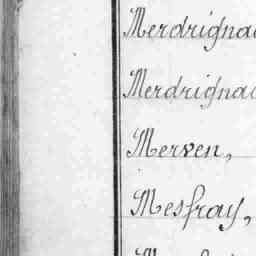 Merdrignac
Merdrignac
Merven,
Mesfray,